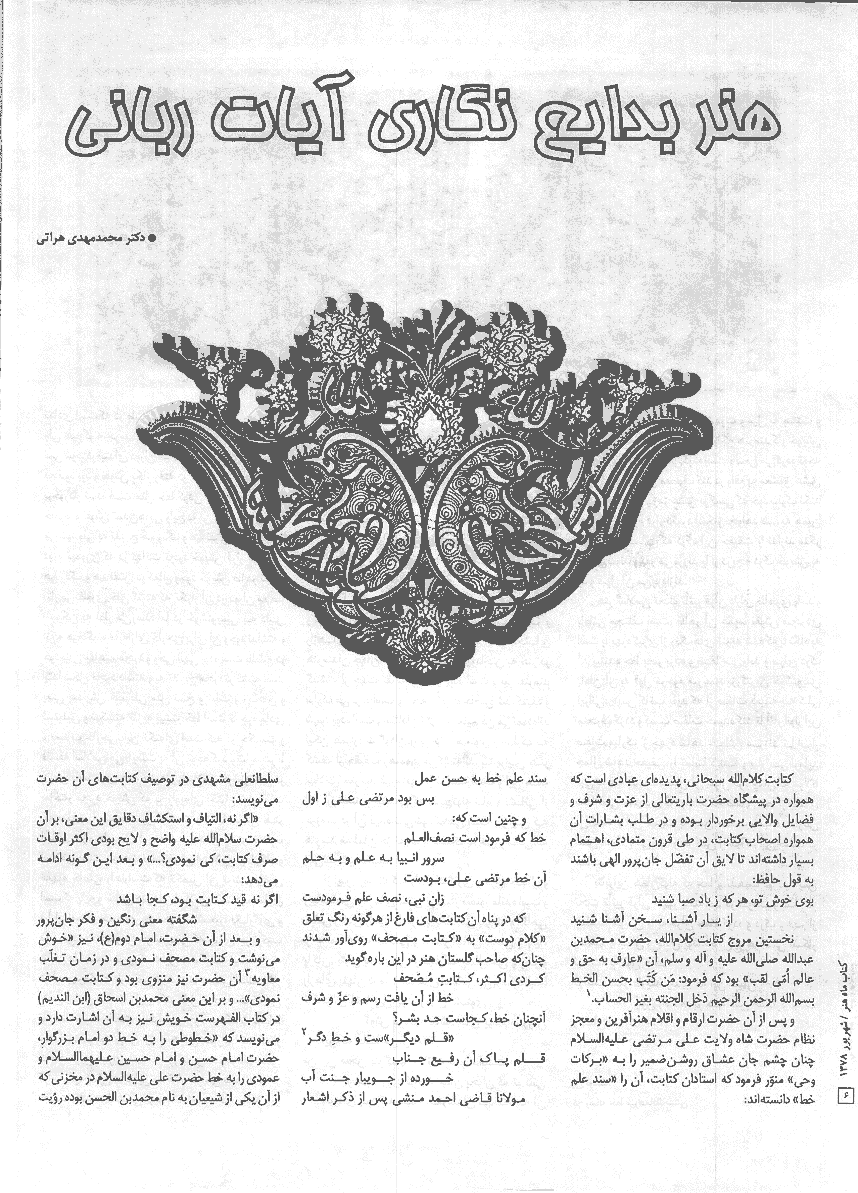 هنر بدایع نگاری آیات ربانی
● دکتر محمدمهدی هراتی
کتابت کلام‌الله سبحانی، پدیده‌ای عبادی است که
همواره در پیشگاه حضرت باریتعالی از عزت و شرف و
فضایل والایی برخوردار بوده و در طلب بشارات آن
همواره اصحاب کتابت، در طی قرون متمادی، اهتمام
بسیار داشته‌اند تا لایق آن تفضّل جان‌پرور الهی باشند
به قول حافظ:
بوی خوش تو، هر که ز باد صبا شنید
از یار آشنا، سخن آشنا شنید
نخستین مروج کتابت کلام‌الله، حضرت محمدبن
عبدالله صلی‌الله علیه و آله و سلم، آن «عارف به حق و
عالم اُمّی لقب» بود که فرمود: مَن کَتَب بحسن الخط
بسم‌الله الرحمن الرحیم دَخل الجنته بغیر الحساب.۱
و پس از آن حضرت ارقام و اقلام هنرآفرین و معجز
نظام حضرت شاه ولایت علی مرتضی علیه‌السلام
چنان چشم جان عشاق روشن‌ضمیر را به «برکات
وحی» منوّر فرمود که استادان کتابت، آن را «سند علم
خط» دانسته‌اند:
سند علم خط به حسن عمل
بس بود مرتضی علی ز اول
و چنین است که:
خط که فرمود است نصف‌العلم
سرور انبیا به علم و به حلم
آن خط مرتضی علی، بودست
زان نبی، نصف علم فرمودست
که در پناه آن کتابت‌های فارغ از هرگونه رنگ تعلق
«کلام دوست» به «کتابت مصحف» روی‌آور شدند
چنان‌که صاحب گلستان هنر در این باره گوید
کردی اکثر، کتابتِ مُصْحَف
خط از آن یافت رسم و عزّ و شرف
آنچنان خط، کجاست حد بشر؟
«قلم دیگر»ست و خطِ دگر۲
قلم پاک آن رفیع جناب
خورده از جویبار جنت آب
مولانا قاضی احمد منشی پس از ذکر اشعار
سلطانعلی مشهدی در توصیف کتابت‌های آن حضرت
می‌نویسد:
«اگر نه، التیاف و استکشاف دقایق این معنی، بر آن
حضرت سلام‌الله علیه واضح و لایح بودی اکثر اوقات
صرف کتابت، کی نمودی؟...» و بعد این گونه ادامه
می‌دهد:
اگر نه قید کتابت بود، کجا باشد
شگفته معنی رنگین و فکر جان‌پرور
و بعد از آن حضرت، امام دوم(ع)، نیز «خوش
می‌نوشت و کتابت مصحف نمودی و در زمان تغلّب
معاویه۳ آن حضرت نیز منزوی بود و کتابت مصحف
نمودی»... و بر این معنی محمدبن اسحاق (ابن الندیم)
در کتاب الفهرست خویش نیز به آن اشارت دارد و
می‌نویسد که «خطوطی را به خط دو امام بزرگوار،
حضرت امام حسن و امام حسین علیهماالسلام و
عمودی را به خط حضرت علی علیه‌السلام در مخزنی که
از آن یکی از شیعیان به نام محمدبن الحسن بوده رؤیت
کتاب ماه هنر / شهریور ۱۳۷۸
۶